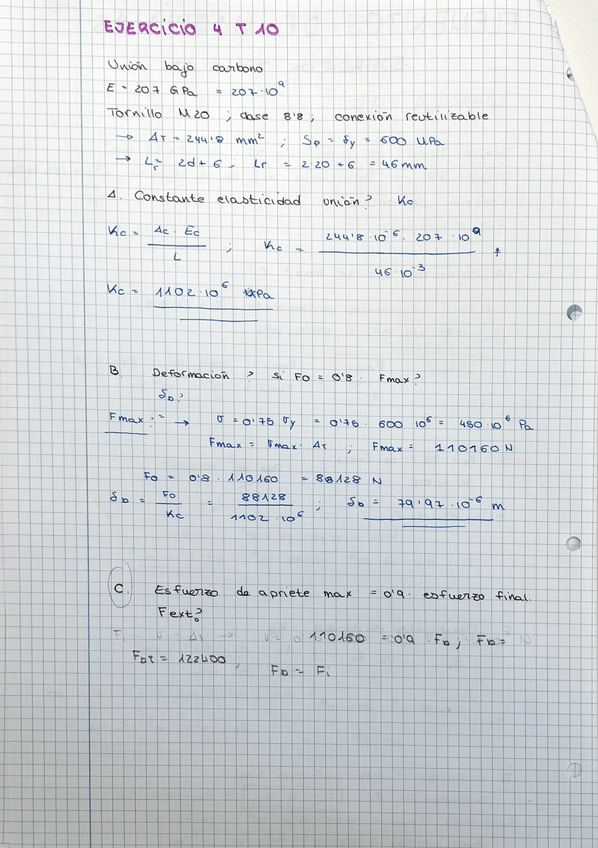 EJERCICIO 4 T 10
Unión bajo carbono
E = 207 GPa = 207·10⁹
Tornillo M20 ; clase 8'8 ; conexión reutilizable
→ Ar = 244'8 mm² ; Sp = δy = 600 MPa
→ Lr = 2d+6 , Lr = 2·20+6 = 46 mm
A. Constante elasticidad unión? Kc
Kc = Ac · Ec / L ; Kc = 244'8·10⁻⁶ · 207 · 10⁹ / 46·10⁻³ ;
Kc = 1102·10⁶ Pa
B Deformación ? si Fo = 0'8 · Fmax?
δb?
Fmax? → σ = 0'75 σy = 0'75 · 600 10⁶ = 450·10⁶ Pa
Fmax = σmax · Ar ; Fmax = 110160 N
Fo = 0'8 · 110160 = 88128 N
δb = Fo / Kc = 88128 / 1102·10⁶ ; δb = 79'97·10⁻⁶ m
C. Esfuerzo de apriete max = 0'9 · esfuerzo final.
Fext?
110160 = 0'9 Fb ; Fb =
Fbt = 122400 , Fb = Fi